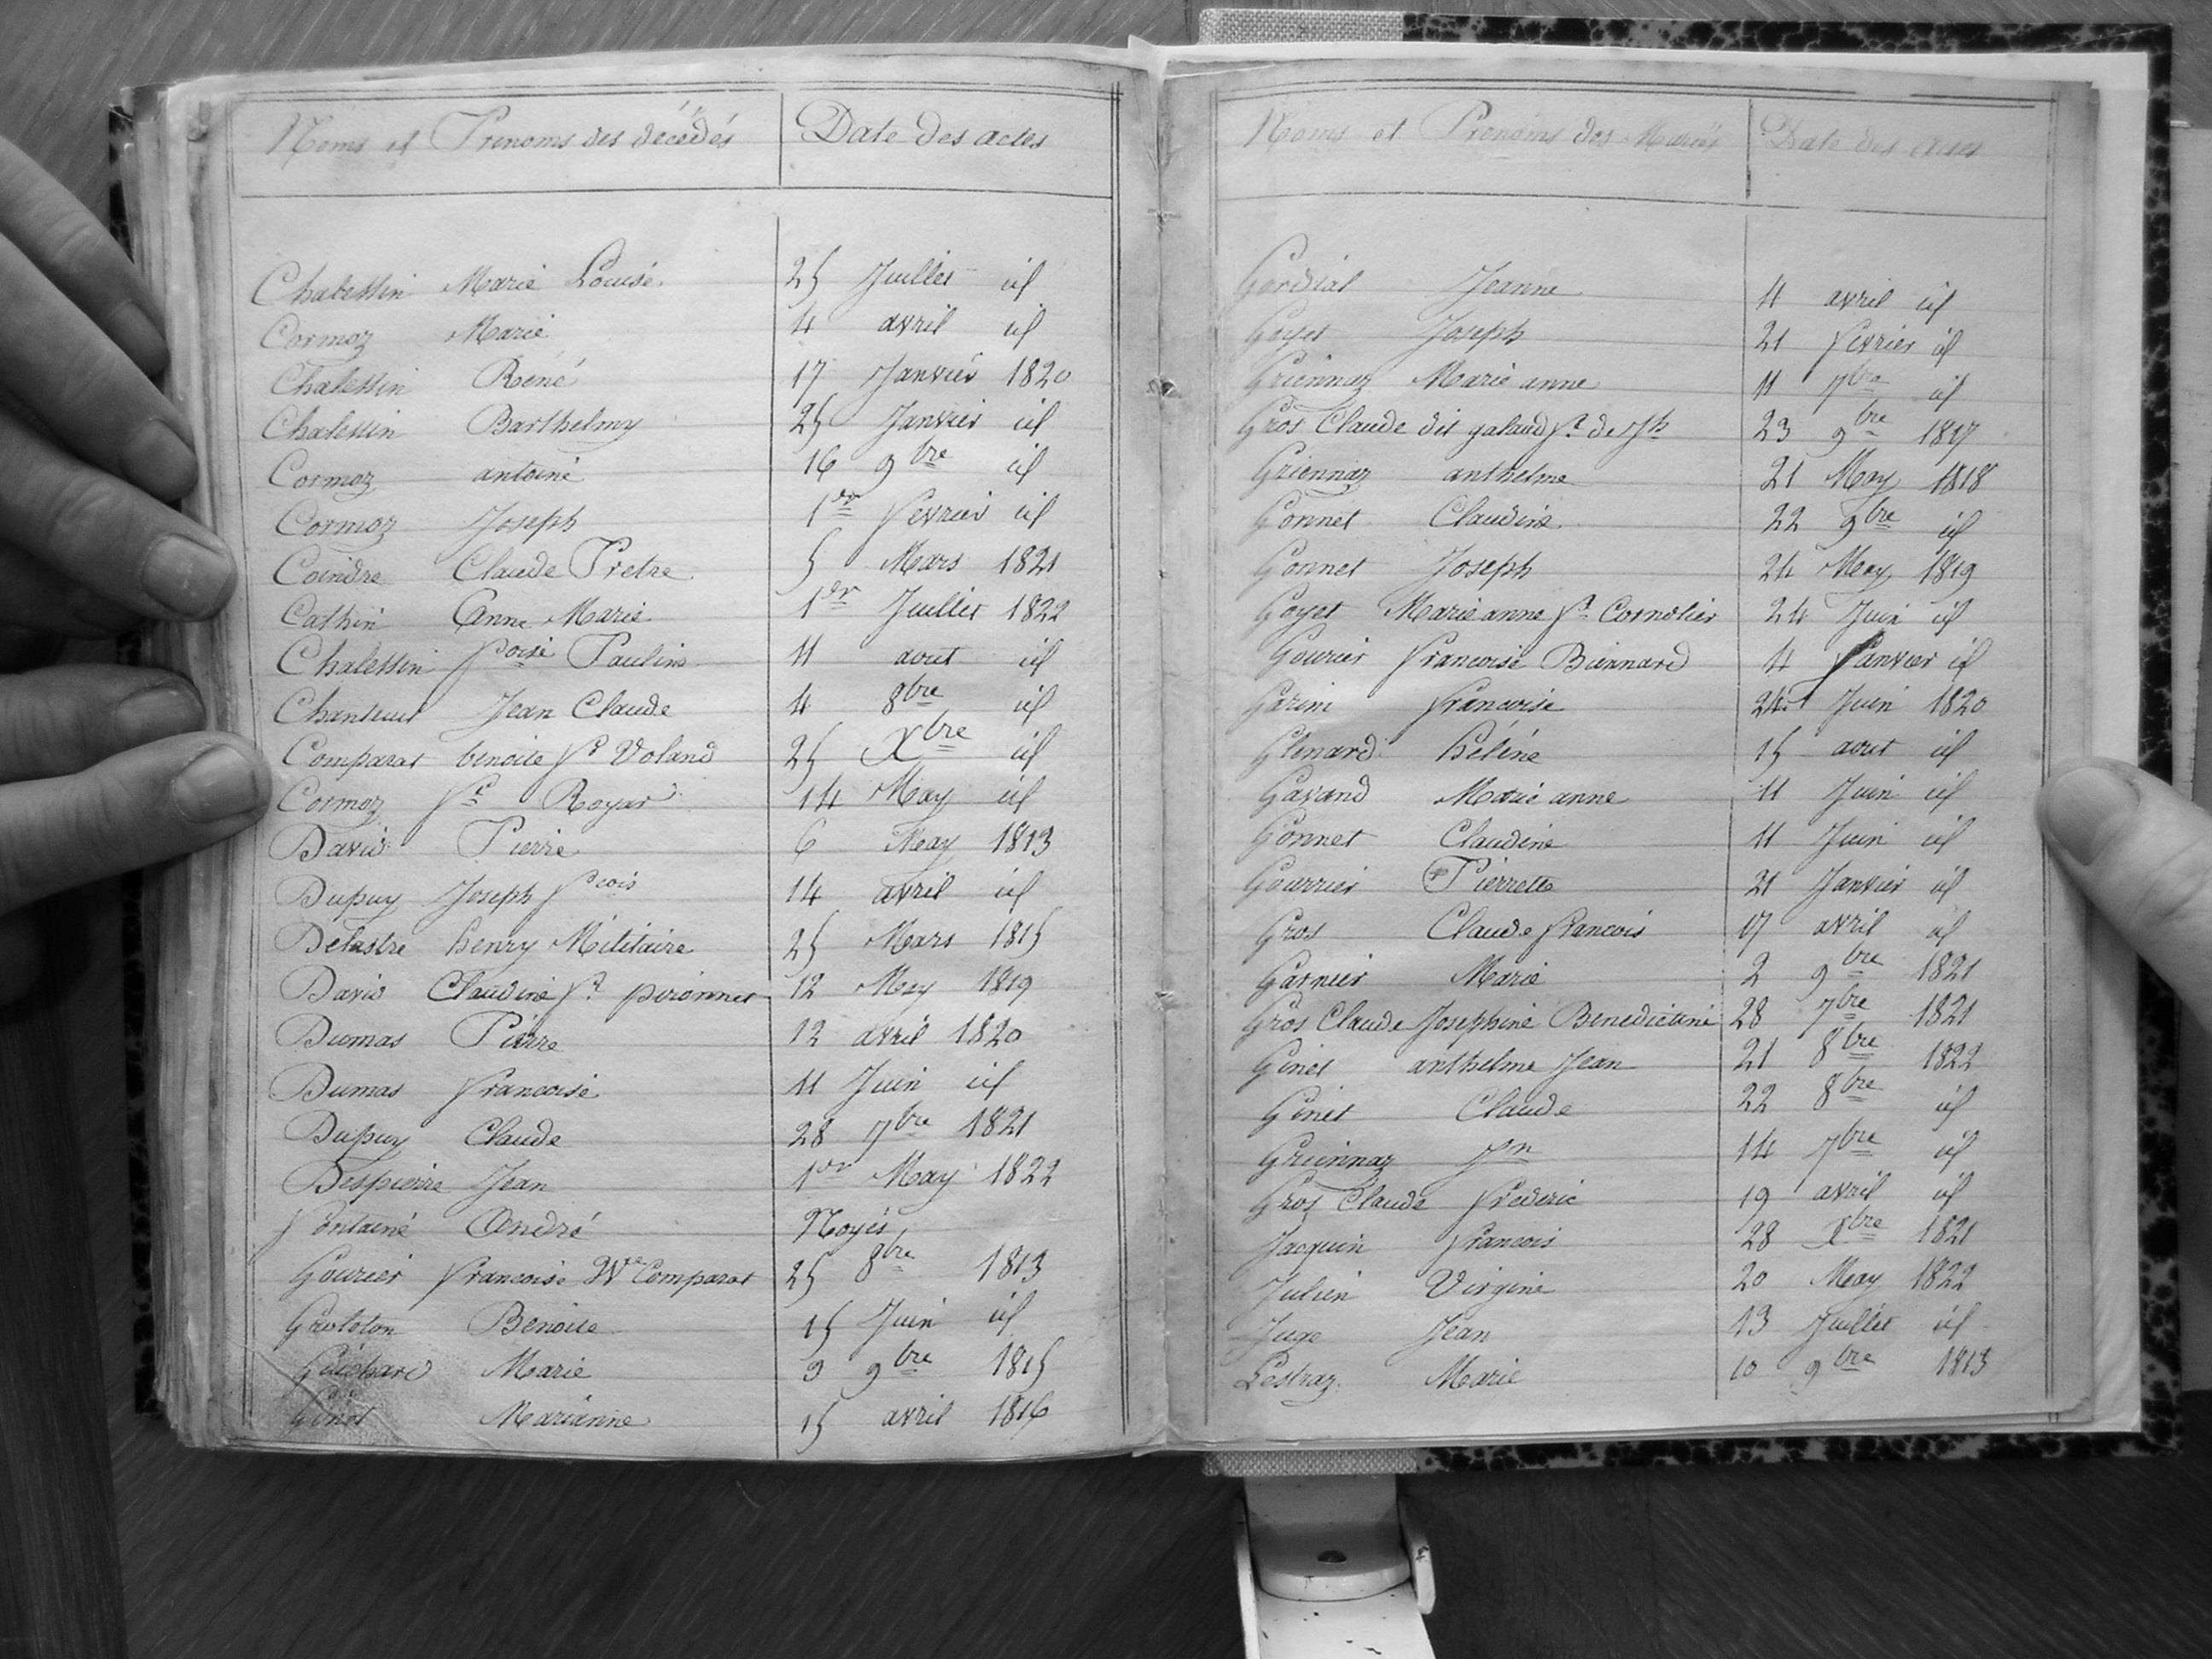 Noms et Prenoms des décédés | Date des actes
Chatessin Marie Louise 25 Juillet id
Cormoz Marie 4 avril id
Chalessin Réné 17 Janvier 1820
Chalessin Barthelmy 25 Janvier id
Cormoz antoine 16 9bre id
Cormoz Joseph 1er fevrier id
Coindre Claude Pretre 5 Mars 1821
Cathin Anne Marie 1er Juillet 1822
Chalessin foise Pauline 11 aout id
Chanteur Jean Claude 4 8bre id
Comparat benoite fe Voland 25 Xbre id
Cormoz fe Royar 14 May id
David Pierre 6 May 1813
Dupuy Joseph fcois 14 avril id
Delastre henry Militaire 25 Mars 1815
David Claudine fe pironnet 12 May 1819
Dumas Pierre 12 avril 1820
Dumas francoise 11 Juin id
Dupuy Claude 28 7bre 1821
Despierre Jean 1er May 1822
fontaine André Noyés
Gourier francoise Ve Comparat 25 8bre 1813
Groleton Benoite 15 Juin id
Guichard Marie 3 9bre 1815
Ginet Marianne 15 avril 1816
Noms et Prenoms des Mariés | Date des actes
Gordial Jeanne 4 avril id
Goyet Joseph 21 fevrier id
Griennaz Marie anne 11 7bre id
Gros Claude dit galaud fs de Jh 23 9bre 1817
Griennaz anthelme 21 May 1818
Gonnet Claudine 22 9bre id
Gonnet Joseph 24 May 1819
Goyet Marie anne fe Cornolier 24 Juin id
Gourier francoise Biennard 4 Janvier id
Garini francoise 24 Juin 1820
Glenard héléne 15 aout id
Gavand Marie anne 11 Juin id
Gonnet Claudine 11 Juin id
Gourrier Pierrette 21 Janvier id
Gros Claude francois 17 avril id
Garnier Marie 2 9bre 1821
Gros Claude Josephine Benedictine 28 7bre 1821
Ginet anthelme Jean 21 8bre 1822
Ginet Claude 22 8bre id
Griennaz Jn 14 7bre id
Gros Claude frederic 19 avril id
Jacquin francois 28 Xbre 1821
Julien Virginie 20 May 1822
Juge Jean 13 Juillet id
Lestraz Marie 10 9bre 1813